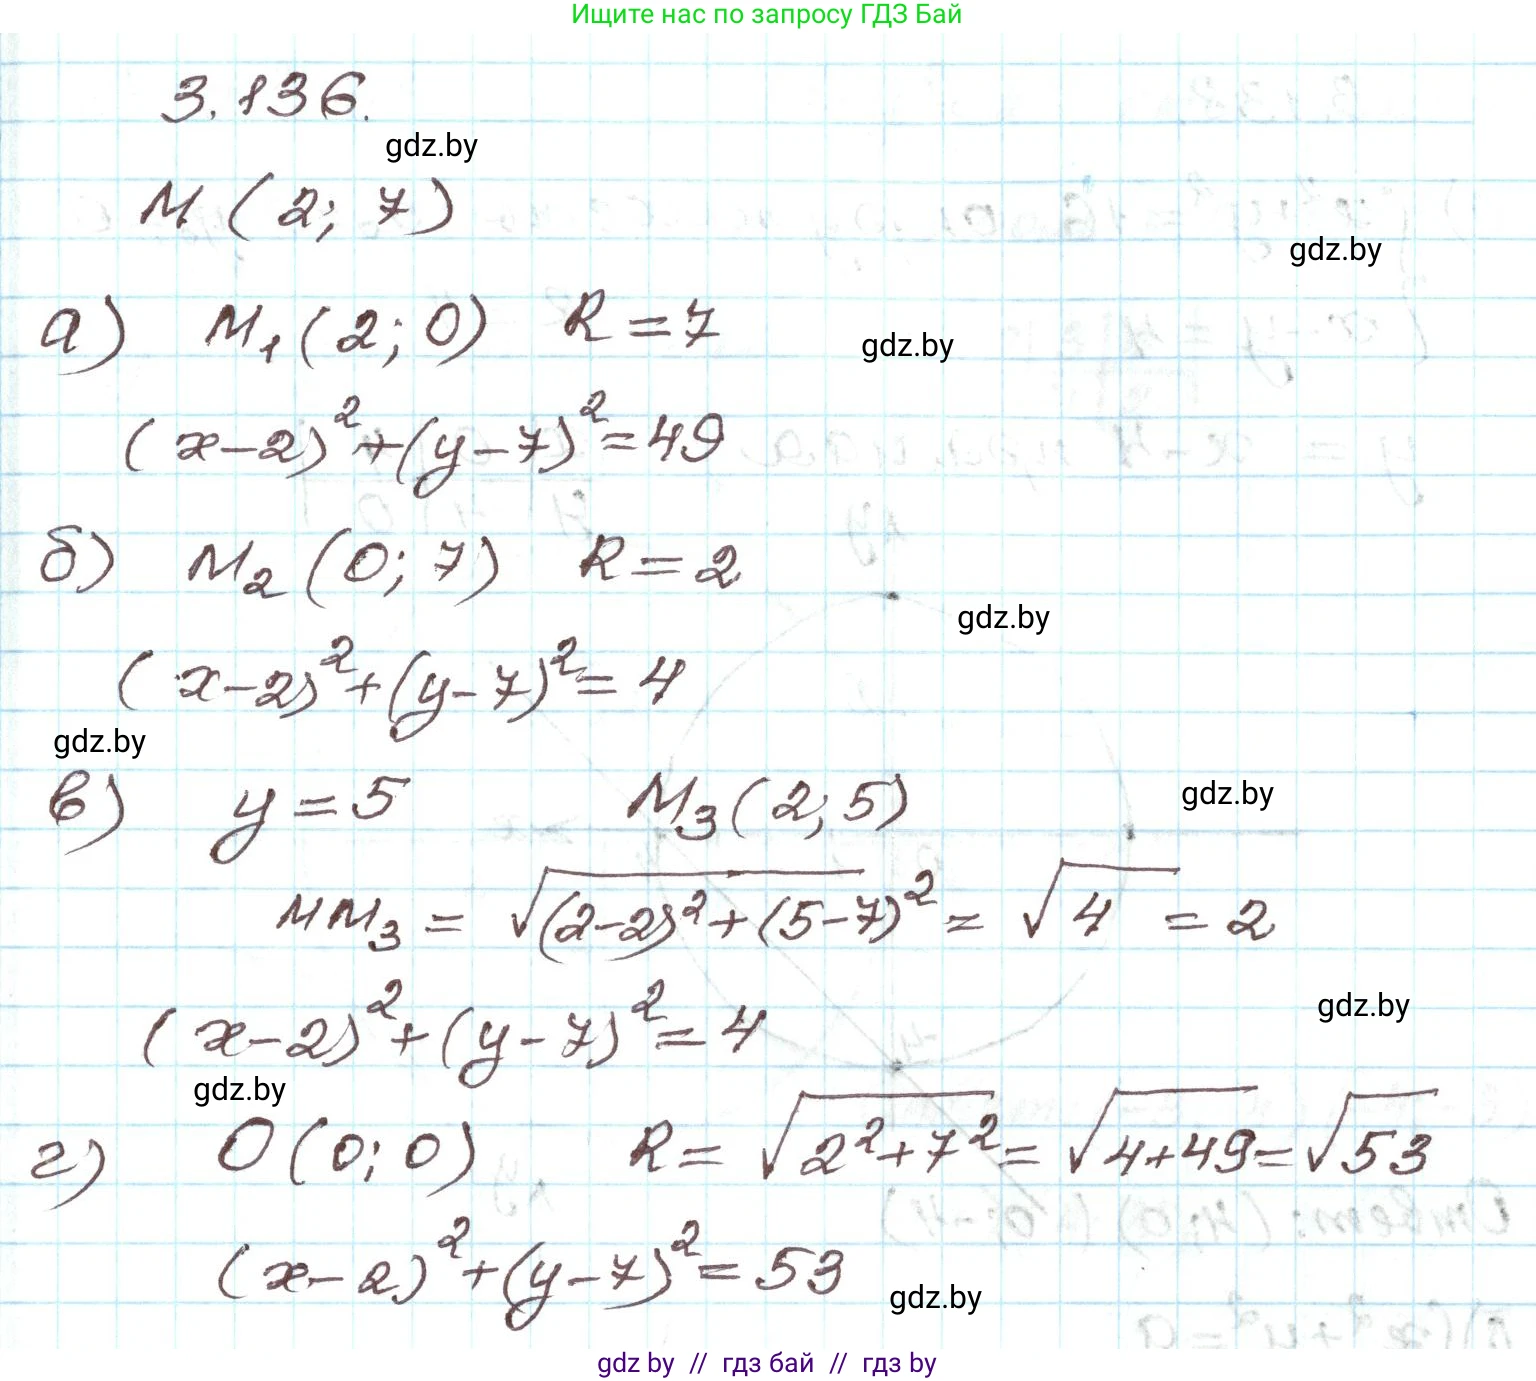 Ищите нас по запросу ГДЗ Бай
3.136.
gdz.by
M (2; 7)
gdz.by
а) M₁(2; 0) R = 7
gdz.by
(x-2)²+(y-7)²=49
б) M₂(0; 7) R = 2
gdz.by
(x-2)²+(y-7)²=4
gdz.by
в) y = 5 M₃(2; 5)
gdz.by
MM₃ = √(2-2)²+(5-7)² = √4 = 2
gdz.by
(x-2)²+(y-7)²=4
gdz.by
г) O(0; 0) R = √2²+7² = √4+49 = √53
(x-2)²+(y-7)²=53
gdz.by
gdz by // гдз бай // гдз by